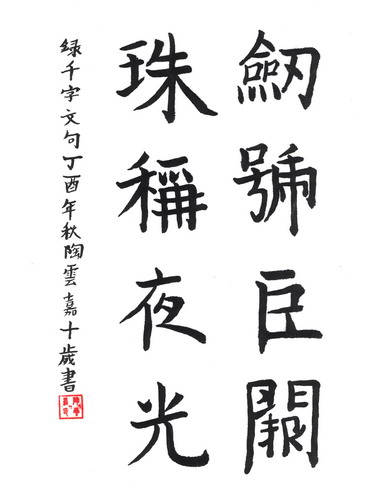 劒號臣闕
珠稱夜光
緑千字文句丁酉年秋陶雲嘉十歲書